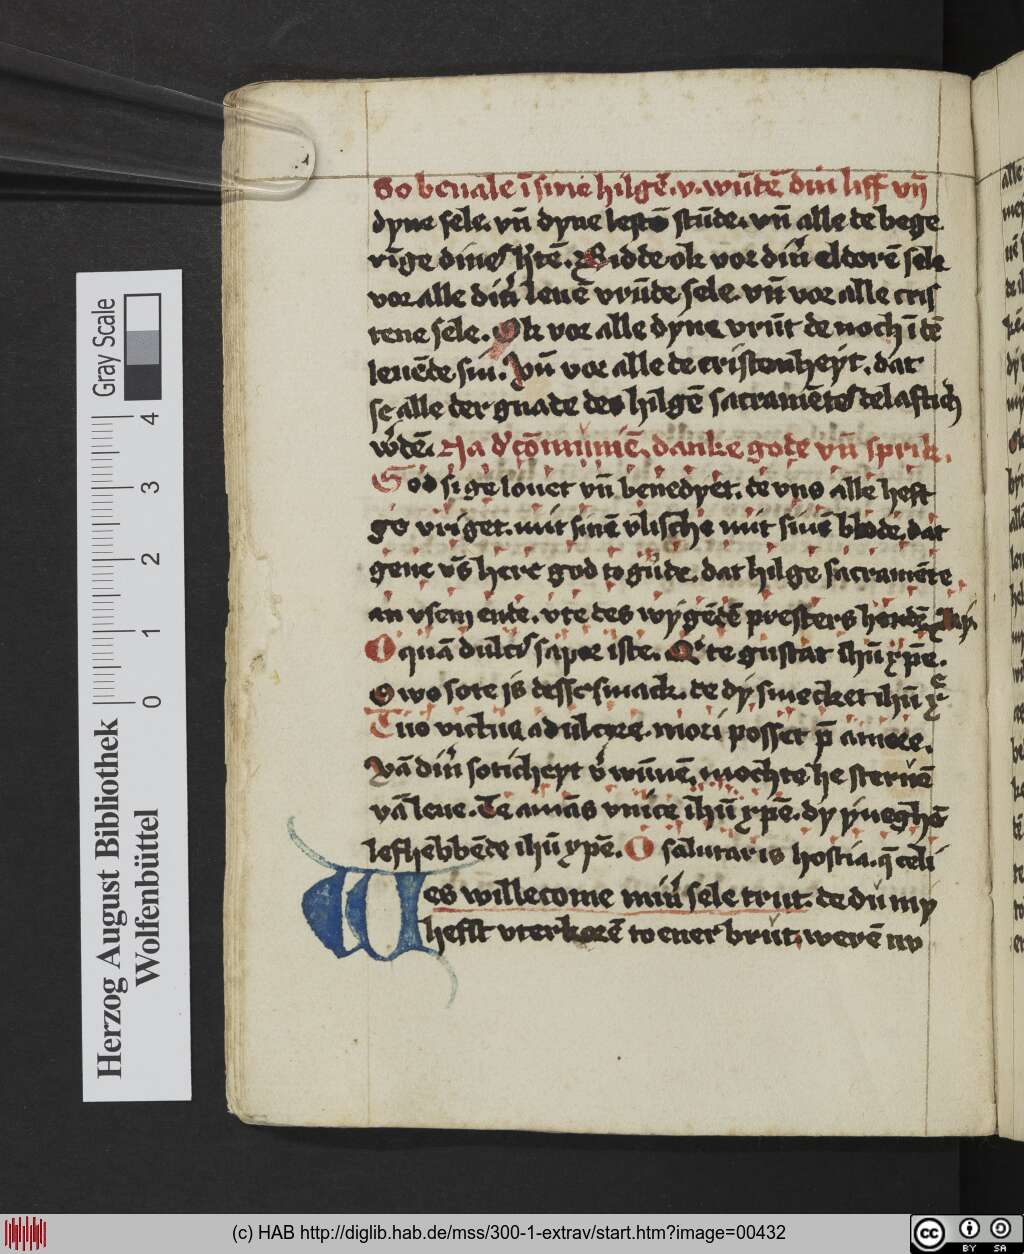 So beuale ī sine hilgē. v. wūdē din liff vn̄
dyne sele. vn̄ dyne lestē stūde. vn̄ alle de bege
rīge dines h'tē. Bidde ok vor din' elderē sele
vor alle din' leuē vrūde sele. vn̄ vor alle cris
tene sele. Ok vor alle dyne vrūt de noch ī dē
leuēde sin. Vn̄ vor alle de cristenheyt. dat
se alle der gnade des hilgē sacramētes delaftich
w'dē. Na d' cōmuniē. danke gode vn̄ sprik.
God si ge louet vn̄ benedyet. de vns alle heft
ge spiget. mit sinē vlische mit sinē blode. dat
geue vs here god to gude. dat hilge sacramēte
an vsem ende. vte des wygedē presters hendē
O quā dulcis sapor iste. Q' te gustat ihū xp̄e.
O wo sote is desse smack. de dy smecket ihū x
Tuo victus a dulcore. mori posset p̄ amore.
Vā din' soticheyt v' wūnē. mochte he steruē
vā leue. Te amās vnice ihū xp̄e. dy ynneghē
lefhebbēde ihū xp̄e. O salutaris hostia. q̄ celi
Wes willecome min' sele trut. de du my
hefst vterkorē to ener brut. weren nv
Herzog August Bibliothek
Wolfenbüttel
Gray Scale
0 1 2 3 4
(c) HAB http://diglib.hab.de/mss/300-1-extrav/start.htm?image=00432
cc BY SA